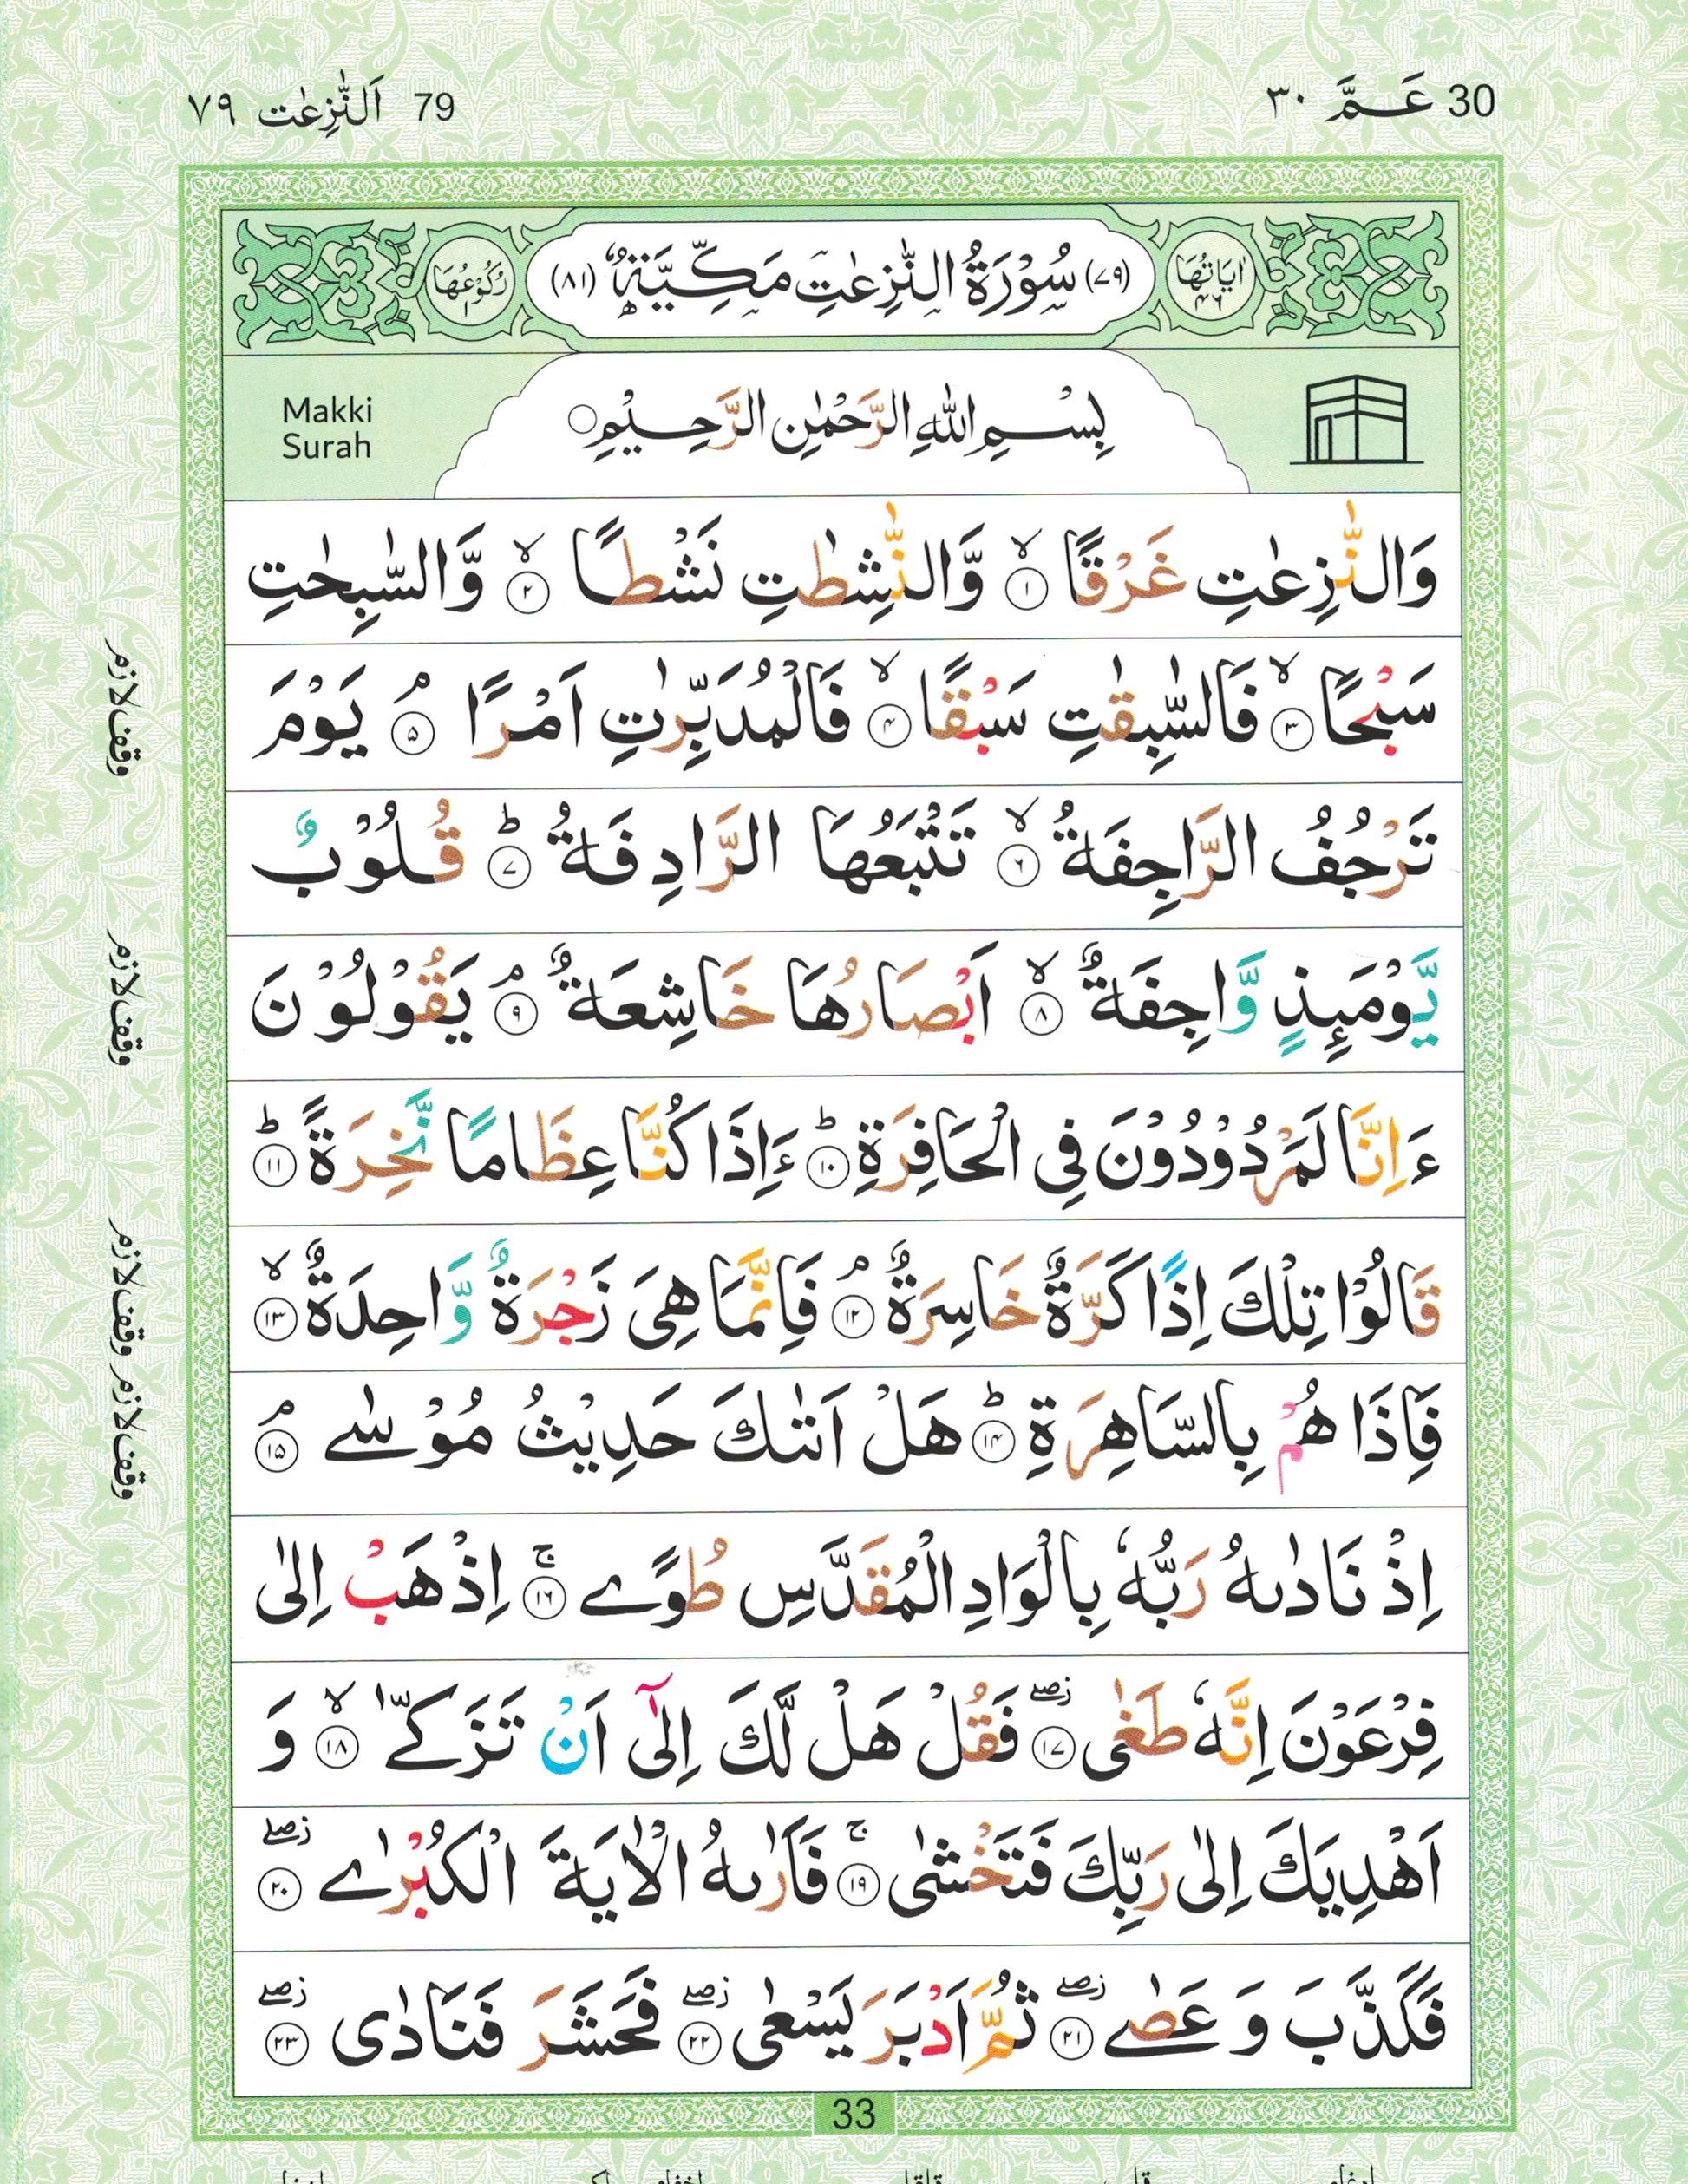 30 عَـمَّ ٣٠
79 اَلنّٰزِعٰت ٧٩
اٰيَاتُهَا ٤٦
(٧٩) سُوْرَةُ النّٰزِعٰتِ مَكِّيَّةٌ (٨١)
رُكُوْعُهَا
Makki
Surah
بِسْمِ اللّٰهِ الرَّحْمٰنِ الرَّحِيْمِ ○
وَالنّٰزِعٰتِ غَرْقًا ۙ‏ ١ وَّالنّٰشِطٰتِ نَشْطًا ۙ‏ ٢ وَّالسّٰبِحٰتِ
سَبْحًا ۙ‏ ٣ فَالسّٰبِقٰتِ سَبْقًا ۙ‏ ٤ فَالْمُدَبِّرٰتِ اَمْرًا ۘ‏ ٥ يَوْمَ
تَرْجُفُ الرَّاجِفَةُ ۙ‏ ٦ تَتْبَعُهَا الرَّادِفَةُ ؕ‏ ٧ قُلُوْبٌ
يَّوْمَىِٕذٍ وَّاجِفَةٌ ۙ‏ ٨ اَبْصَارُهَا خَاشِعَةٌ ۘ‏ ٩ يَقُوْلُوْنَ
ءَاِنَّا لَمَرْدُوْدُوْنَ فِى الْحَافِرَةِ ؕ‏ ١٠ ءَاِذَا كُنَّا عِظَامًا نَّخِرَةً ؕ‏ ١١
قَالُوْا تِلْكَ اِذًا كَرَّةٌ خَاسِرَةٌ ۘ‏ ١٢ فَاِنَّمَا هِىَ زَجْرَةٌ وَّاحِدَةٌ ۙ‏ ١٣
فَاِذَا هُمْ بِالسَّاهِرَةِ ؕ‏ ١٤ هَلْ اَتٰىكَ حَدِيْثُ مُوْسٰى ۘ‏ ١٥
اِذْ نَادٰىهُ رَبُّهٗ بِالْوَادِ الْمُقَدَّسِ طُوًى ۚ‏ ١٦ اِذْهَبْ اِلٰى
فِرْعَوْنَ اِنَّهٗ طَغٰى ۖ‏ ١٧ فَقُلْ هَلْ لَّكَ اِلٰۤى اَنْ تَزَكّٰى ۙ‏ ١٨ وَ
اَهْدِيَكَ اِلٰى رَبِّكَ فَتَخْشٰى ۚ‏ ١٩ فَاَرٰىهُ الْاٰيَةَ الْكُبْرٰى ۖ‏ ٢٠
فَكَذَّبَ وَ عَصٰى ۖ‏ ٢١ ثُمَّ اَدْبَرَ يَسْعٰى ۖ‏ ٢٢ فَحَشَرَ فَنَادٰى ۖ‏ ٢٣
وقف لازم
وقف لازم
وقف لازم وقف لازم
33